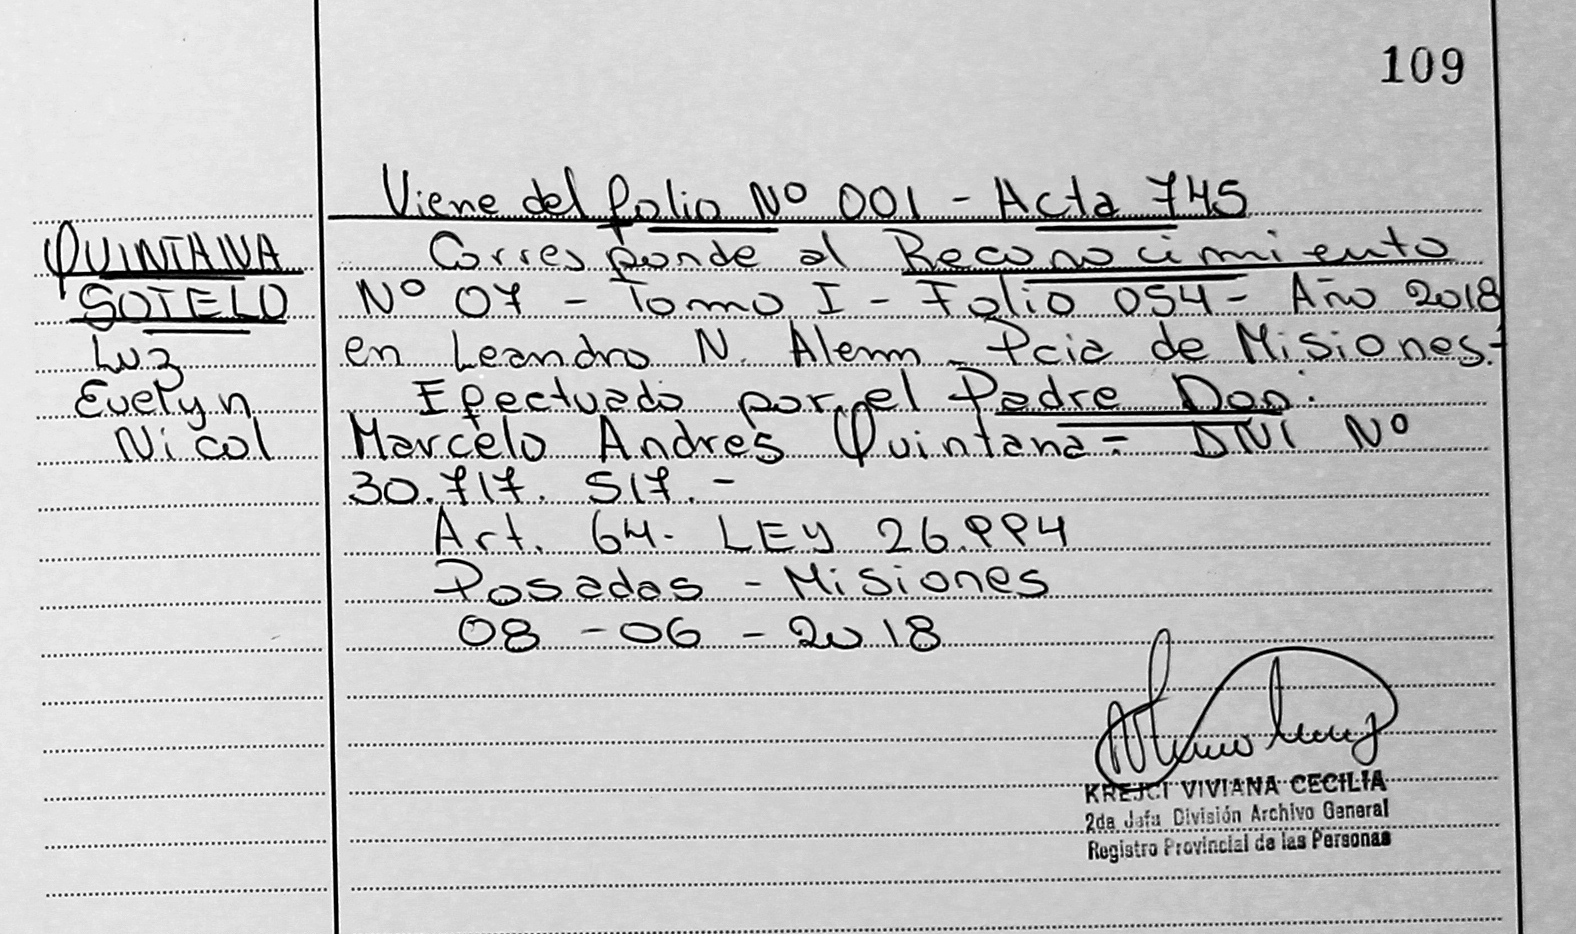 109
Viene del folio Nº 001 - Acta 745
QUINTANA
SOTELO
Luz
Evelyn
Nicol
Corresponde al Reconocimiento
Nº 07 - Tomo I - Folio 054 - Año 2018
en Leandro N. Alem - Pcia de Misiones.-
Efectuado por el Padre Don.
Marcelo Andres Quintana = DNI Nº
30.717.517.-
Art. 64. LEY 26.994
Posadas - Misiones
08 - 06 - 2018
KREJCI VIVIANA CECILIA
2da Jafa División Archivo General
Registro Provincial de las Personas